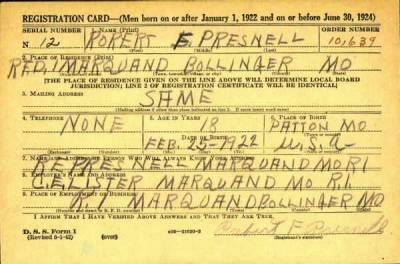 REGISTRATION CARD—(Men born on or after January 1, 1922 and on or before June 30, 1924)
SERIAL NUMBER 1. NAME (Print) ORDER NUMBER
N 12 ROBERT E. PRESNELL 10,639
2. PLACE OF RESIDENCE (Print)
RFD. MARQUAND BOLLINGER MO
[THE PLACE OF RESIDENCE GIVEN ON THE LINE ABOVE WILL DETERMINE LOCAL BOARD
JURISDICTION; LINE 2 OF REGISTRATION CERTIFICATE WILL BE IDENTICAL]
3. MAILING ADDRESS
SAME
4. TELEPHONE 5. AGE IN YEARS 6. PLACE OF BIRTH
NONE 18 PATTON MO
FEB. 25-1922 U.S.A.
7. NAME AND ADDRESS OF PERSON WHO WILL ALWAYS KNOW YOUR ADDRESS
PRESNELL MARQUAND MO R1
8. EMPLOYER'S NAME AND ADDRESS
MARQUAND MO R.1.
9. PLACE OF EMPLOYMENT OR BUSINESS
R. MARQUAND BOLLINGER MO
I AFFIRM THAT I HAVE VERIFIED ABOVE ANSWERS AND THAT THEY ARE TRUE.
D. S. S. Form 1
(Revised 6-1-42) Robert E Presnell
(Registrant's signature)